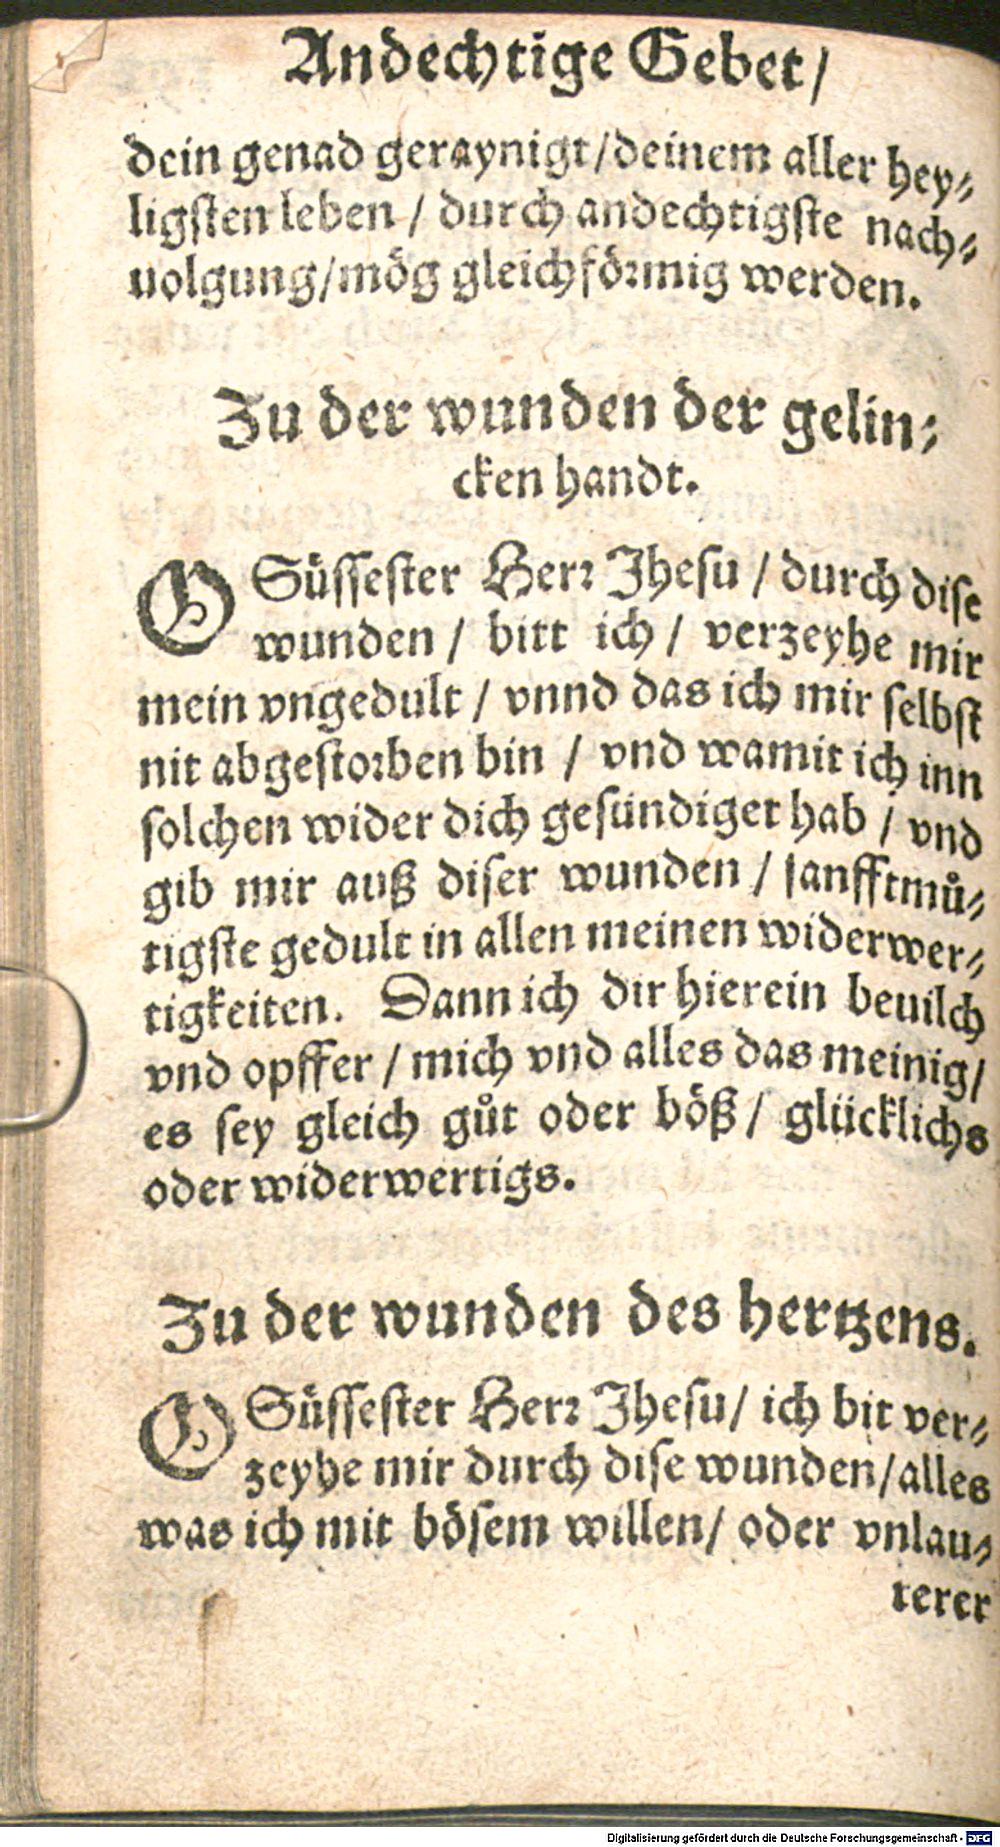 Andechtige Gebet/
dein genad geraynigt/deinem aller hey⸗
ligsten leben / durch andechtigste nach⸗
uolgung/mög gleichförmig werden.
Zu der wunden der gelin⸗
cken handt.
O Süssester Herr Jhesu / durch dise
wunden / bitt ich / verzeyhe mir
mein vngedult / vnnd das ich mir selbst
nit abgestorben bin / vnd wamit ich inn
solchen wider dich gesündiget hab / vnd
gib mir auß diser wunden / sanfftmuͤ⸗
tigste gedult in allen meinen widerwer⸗
tigkeiten. Dann ich dir hierein beuilch
vnd opffer / mich vnd alles das meinig/
es sey gleich guͦt oder böß / glücklichs
oder widerwertigs.
Zu der wunden des hertzens.
O Süssester Herr Jhesu/ ich bit ver⸗
zeyhe mir durch dise wunden/alles
was ich mit bösem willen/ oder vnlau⸗
terer
Digitalisierung gefördert durch die Deutsche Forschungsgemeinschaft - DFG